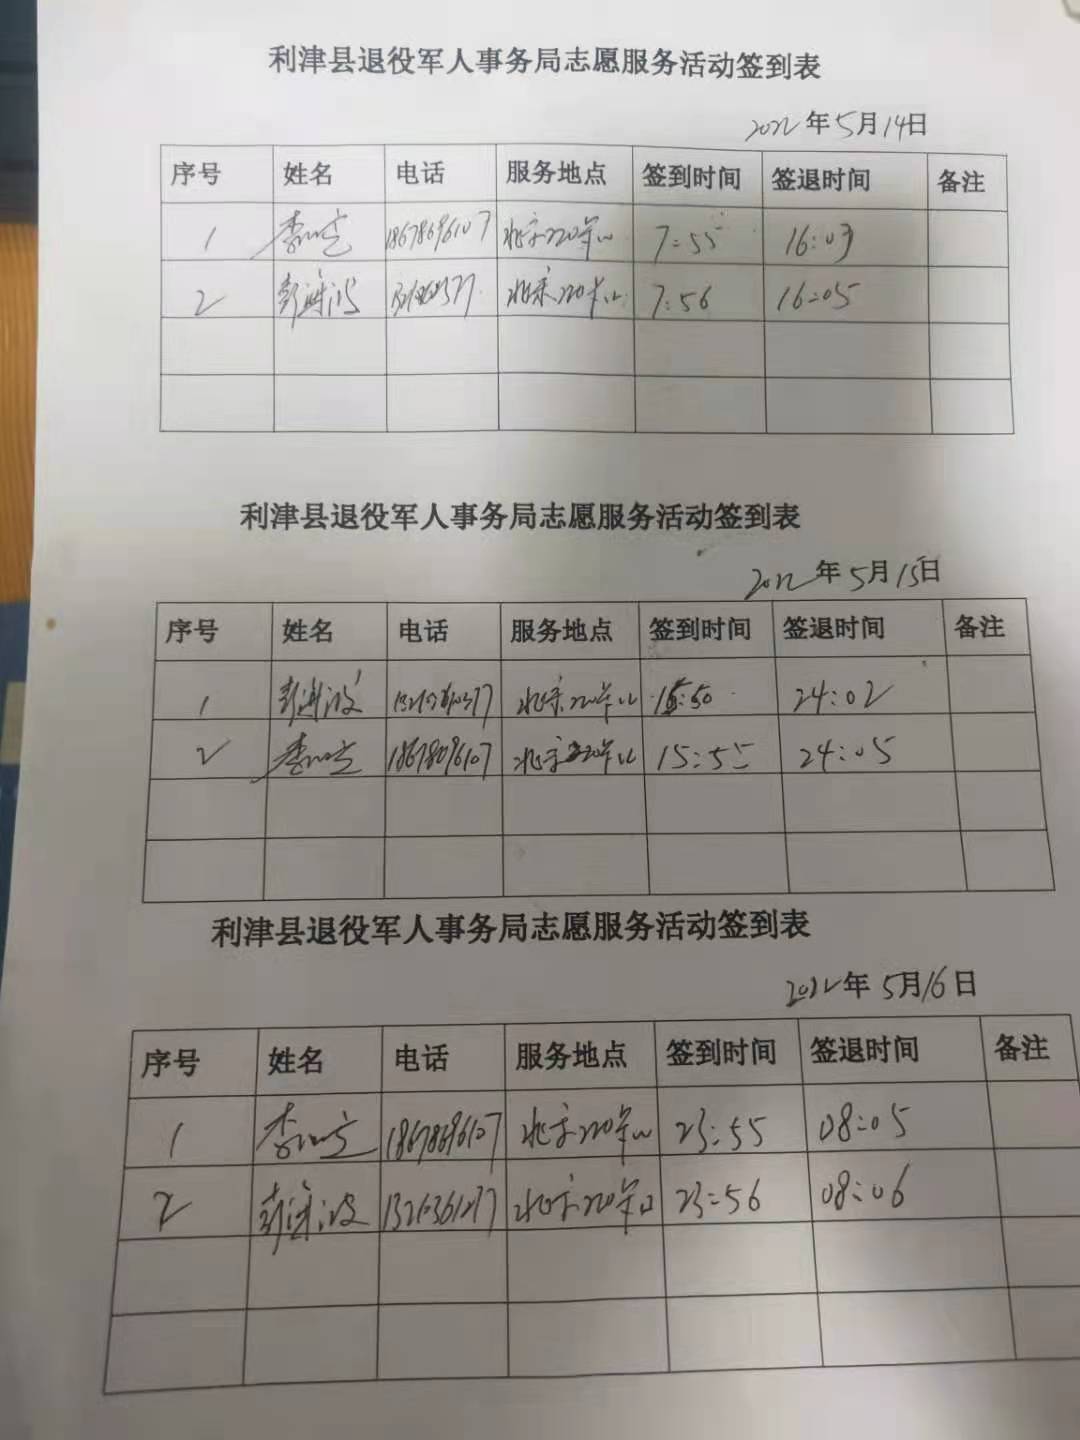 利津县退役军人事务局志愿服务活动签到表
2022年5月14日
序号 姓名 电话 服务地点 签到时间 签退时间 备注
1 18678696107 7:55 16:03
2 7:56 16:05
利津县退役军人事务局志愿服务活动签到表
2022年5月15日
序号 姓名 电话 服务地点 签到时间 签退时间 备注
1 15:50 24:02
2 18678696107 15:55 24:05
利津县退役军人事务局志愿服务活动签到表
2022年5月16日
序号 姓名 电话 服务地点 签到时间 签退时间 备注
1 18678696107 23:55 08:05
2 23:56 08:06